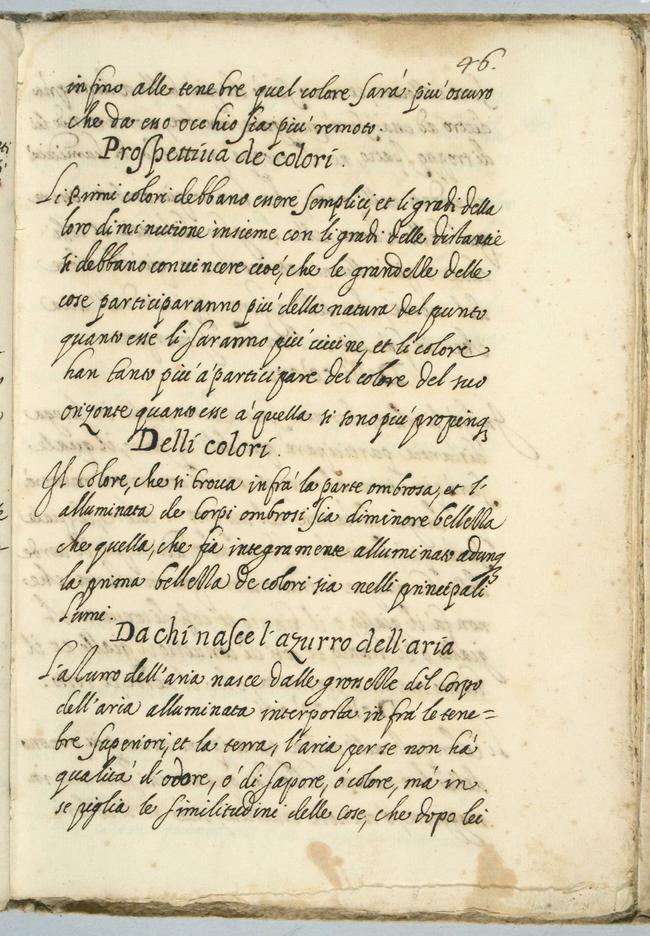 46.
insino alle tenebre quel colore sará piú oscuro
che da esso occhio sia piú remoto.
Prospettiva de colori.
Li Primi colori debbano essere semplici, et li gradi della
loro diminutione insieme con li gradi delle distantie
si debbano convincere cioé, che le grandezze delle
cose participaranno piú della natura del punto
quanto esse li saranno piú vicine, et li colori
han tanto piú á participare del colore del suo
orizonte quanto esse á quella si sono piú propinq
Delli colori.
Il Colore, che si trova infrá la parte ombrosa, et l'
alluminata de Corpi ombrosi sia di minore bellezza
che quella, che sia integramente alluminato adunq
la prima bellezza de colori sia nelli principali
Lumi.
Da chi nasce l'azurro dell'aria
L'azurro dell'aria nasce dalle grosse del Corpo
dell'aria alluminata interposta infrá le tene=
bre superiori, et la terra, l'aria per se non há
qualitá d'odore, ó di sapore, ó colore, má in
se piglia le similitudini delle cose, che dopo lei